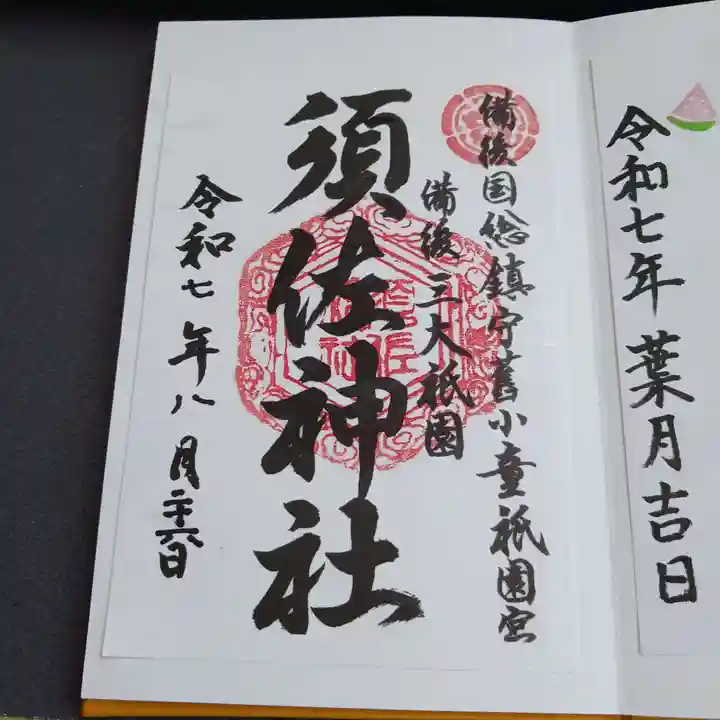 令和七年葉月吉日
備後国総鎮守舊小童祇園宮
備後三大祇園
須佐神社
令和七年八月二十六日